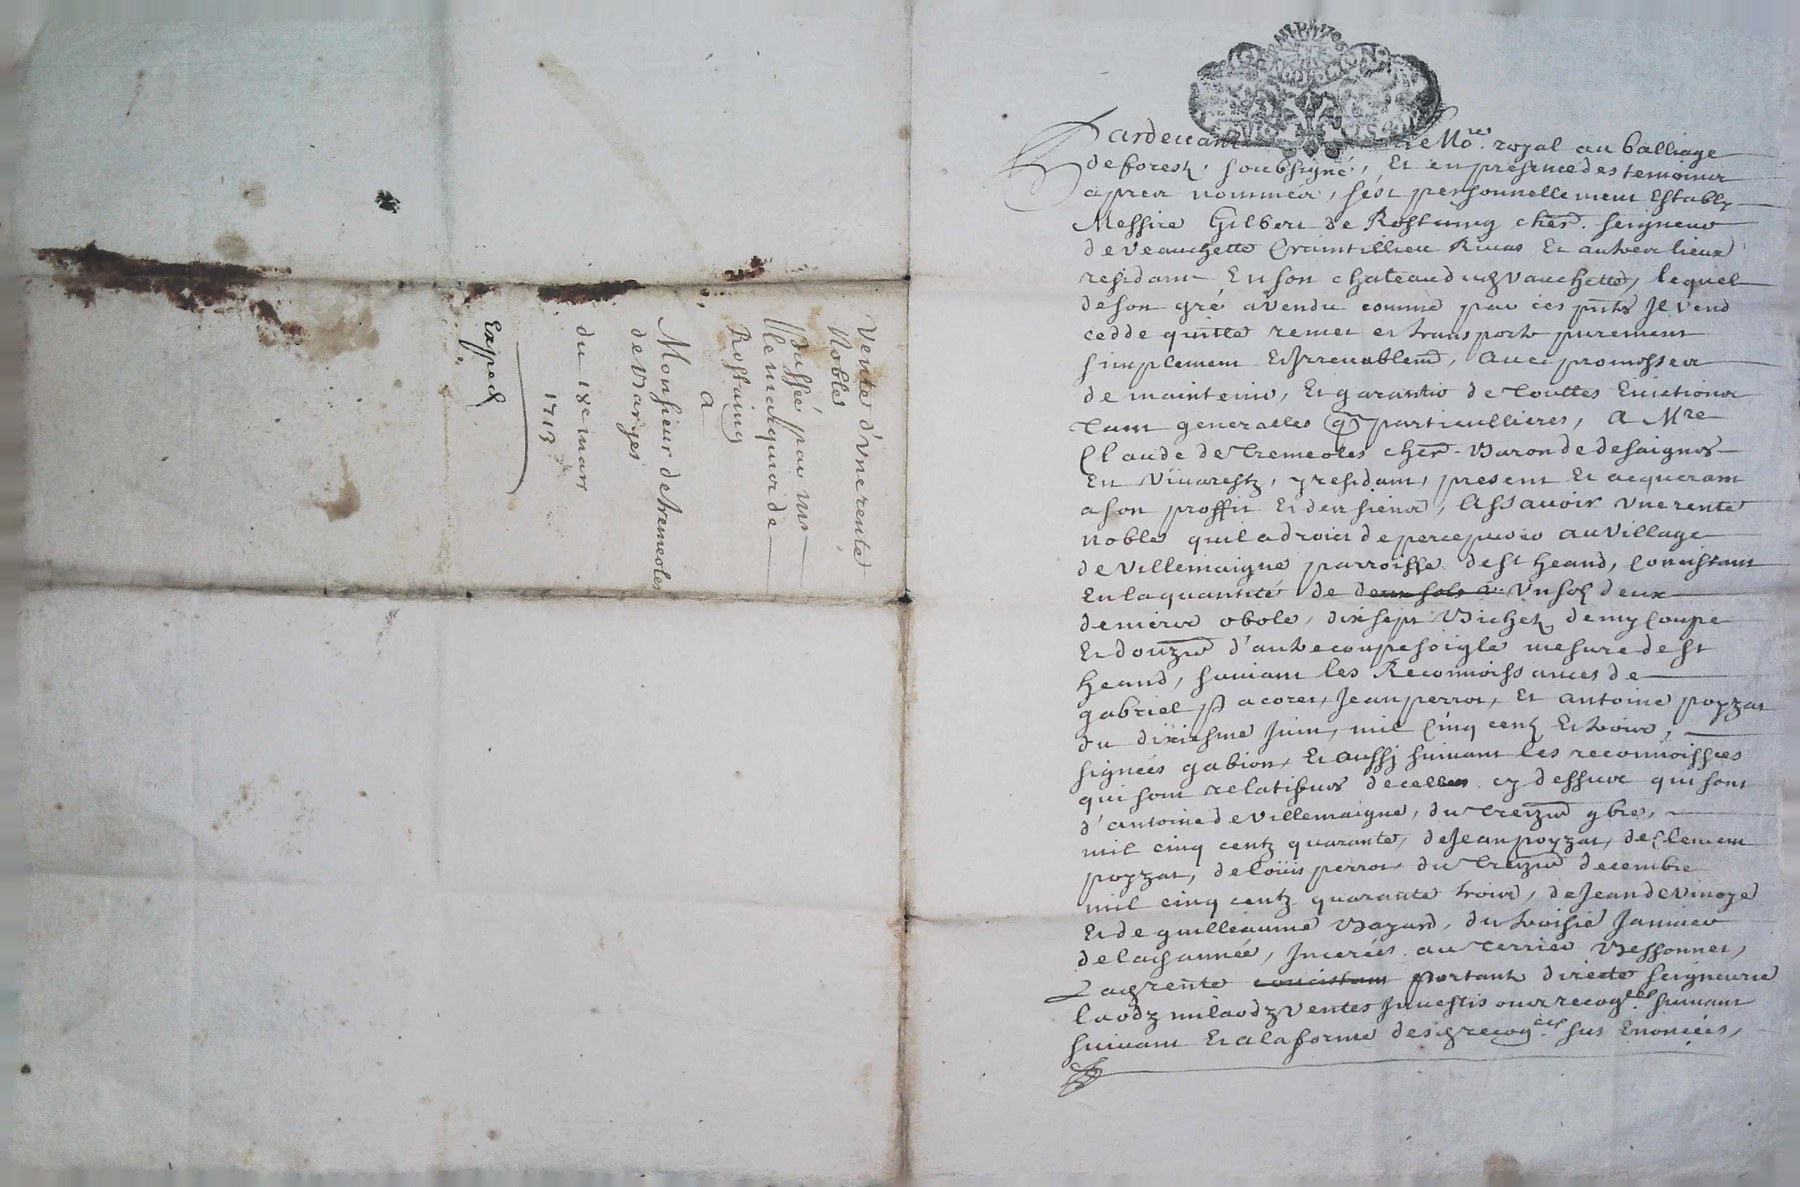 Vente d'Vne rente
Noble
Passée par mr
le marquis de
Rostaing
A
Monsieur de tremeoles
de Barges
du 18e mars
1713
Exped
Pardeuant le No.re royal au balliage
de forestz, soubsigné, Et en presence des temoins
apres nommés, s'est personnellement Estably
Messire Gilbert de Rostaing cher. seigneur
de Veauchette Craintillieu Riuas Et autres lieux
residant En son chateau dudz Vauchette, lequel
de son gré a Vendu comme par ces pnts Il Vend
cedde quitte remet et transporte purement
simplement Et Irreuablemt, auec promesses
de maintenir, Et garantir de touttes Euictions
tant generalles que particullieres, A Mre
Claude de Tremeoles cher. Baron de desaignes
En Viuarestz, y residant, present Et acquerant
a son proffit Et des siens, Assauoir Vne rente
noble quil a droict de perceuoir au Village
de Villemaigne parroisse de st heand, Concistant
En la quantité de deux sols Vn solz deux
deniers obole, dix sept Bichetz demy Coupe
Et douzie d'autre coupe soigle mesure de st
heand, suiuant les Reconnoissances de
gabriel pacoret, Jean perrot, Et antoine poyzat
du dixiesme Juin, mil Cinq centz Et trois,
signées gabion, Et aussy suiuant les reconnoissces
qui sont relatiues decelles cy dessus qui sont
d'antoine de Villemaigne, du treizie 9bre,
mil cinq centz quarante, de Jean poyzat, de Clement
poyzat, de Loüis perrot du treizie decembre
mil cinq centz quarante trois, de Jean de Vinoye
Et de guilleaume Bayard, du troisie Januier
de lad année, Incerées au terrier Bessonnet,
Lad rente concistant portant directe seigneurie
laodz milaodz Ventes Inuestisons recog.ces suiuant
suiuant Et a la forme desd recog.ces sus Enoncées,